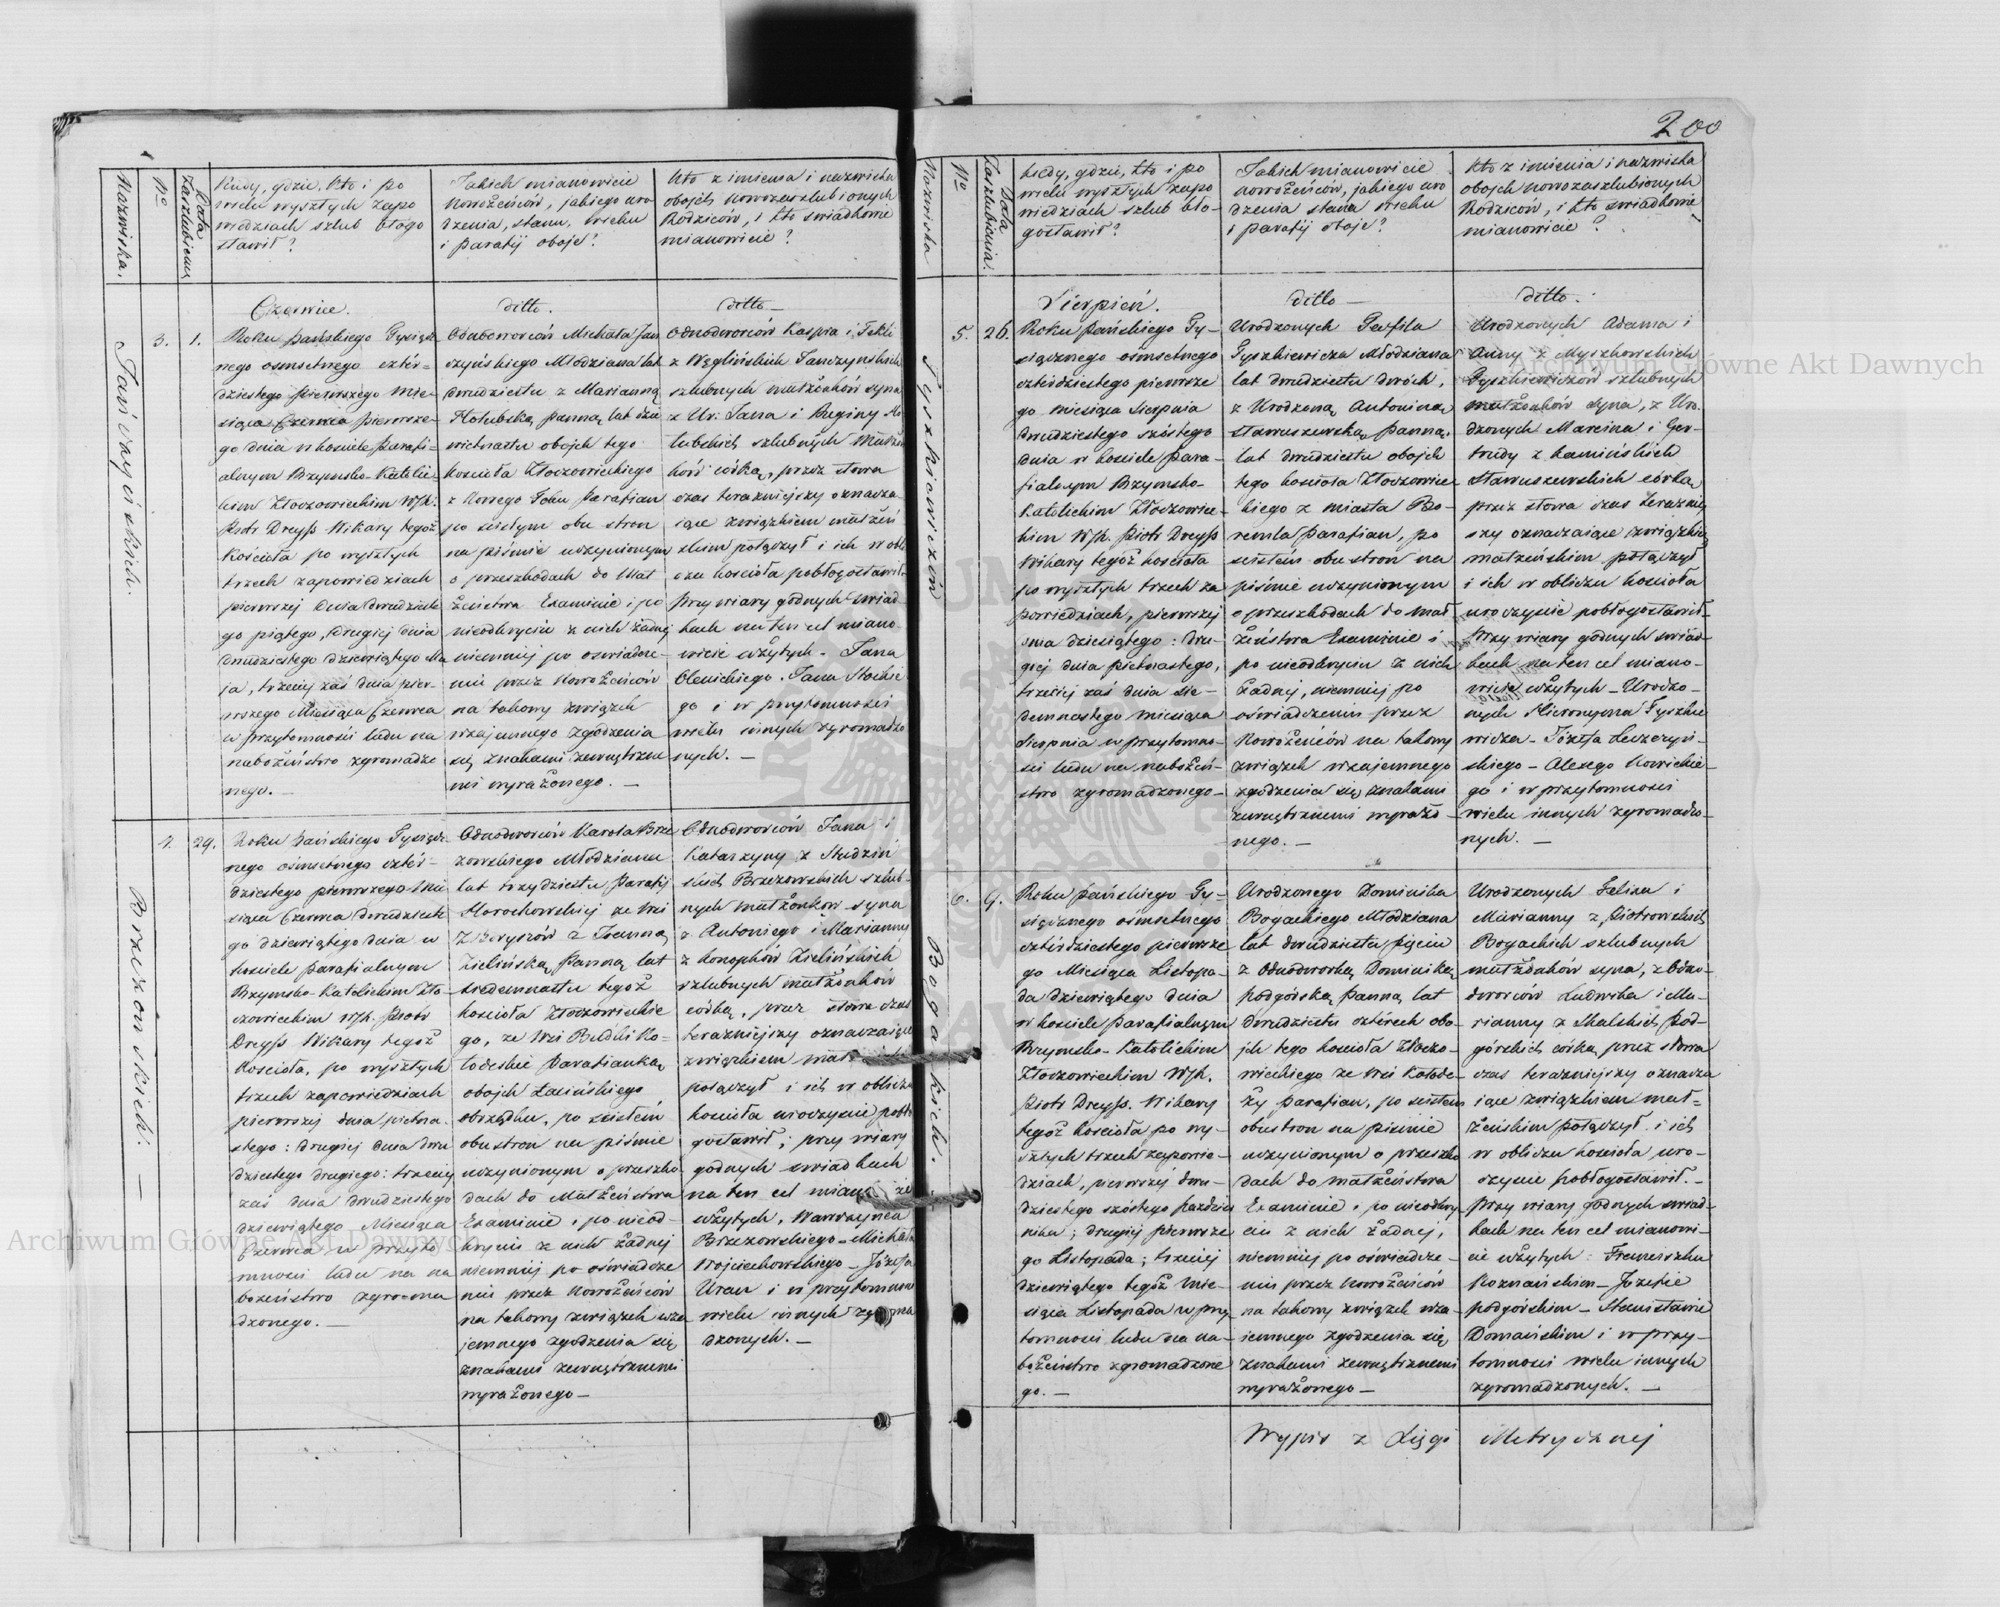 200
Nazwiska.
No
Data Zaszlubienia
Kiedy, gdzie, kto i po
wielu wyszłych zapo
wiedziach szlub błogo
sławił?
Jakich mianowicie
Nowożeńców, jakiego uro
dzenia, stanu, wieku
i parafij oboje?
Kto z imienia i nazwiska
obojch nowozaszlubionych
Rodziców, i kto świadkowie
mianowicie?
Czerwiec.
ditto.
ditto
3.
1.
Roku Pańskiego Tysiącz
nego osmsetnego czter-
dziestego pierwszego Mie-
siąca Czerwca pierwsze-
go dnia w kościele Parafi-
alnym Rzymsko-Katolic-
kim Złoczowieckim WJX.
Piotr Dreyss Wikary tegoż
Kościoła po wyszłych
trzech zapowiedziach
pierwszej dnia dwudzieste
go piątego, drugiej dnia
dwudziestego dziewiątego Ma
ja, trzeciej zaś dnia pier-
wszego Miesiąca Czerwca
w przytomności ludu na
nabożeństwo zgromadzo
nego.
Odnodworców Michała Jan
czyńskiego Młodziana lat
dwudziestu z Marianną
Hołubską panną lat dzie
więtnastu obojch tego
kościoła Złoczowieckiego
z Nowego Folw. parafian
po ścisłym obu stron
na piśmie uczynionym
o przeszkodach do Mał
żeństwa Examinie i po
nieodkryciu z nich żadnej
niemniej po oświadcze-
niu przez Nowożeńców
na takowy związek
wzajemnego zgodzenia
się znakami zewnętrzne
mi wyrażonego.
Odnodworców Kaspra i Tekli
z Węglińskich Janczyńskich
szlubnych małżonków syna
z Ur: Jana i Reginy Ho
łubskich szlubnych małżon
ków córką, przez słowa
czas teraźniejszy oznacza-
iące związkiem małżeń
skim połączył i ich w obli
czu kościoła pobłogosławił
Przy wiary godnych świad
kach na ten cel miano-
wicie użytych - Jana
Olenickiego. Jana Stockie
go i w przytomności
wielu innych zgromadzo
nych.
Janczyńskich.
4.
29.
Roku Pańskiego Tysiącz-
nego ośmsetnego czter-
dziestego pierwszego Mie
siąca Czerwca dwudzieste
go dziewiątego dnia w
kościele parafialnym
Rzymsko-Katolickim Zło
czowieckim WJX. Piotr
Dreyss Wikary tegoż
Kościoła, po wyszłych
trzech zapowiedziach
pierwszej dnia pietna-
stego: drugiej dnia dwu
dziestego drugiego: trzeciej
zaś dnia dwudziestego
dziewiątego Miesiąca
Czerwca w przyto
mności ludu na na
bożeństwo zgroma
dzonego.
Odnodworców Karola Brze
zowskiego Młodziana
lat trzydziestu Parafij
Horochowskiej ze wsi
Zboryszów z Joanną
Zielińską Panną lat
siedemnastu tegoż
kościoła Złoczowieckie
go, ze Wsi Budki Ko-
łodeskie Parafianką
obojch Łacińskiego
obrządku, po ścisłem
obustron na piśmie
uczynionym o przeszko
dach do Małżeństwa
Examinie i po nieod-
kryciu z nich żadnej
niemniej po oświadcze
niu przez Nowożeńców
na takowy związek wza
jemnego zgodzenia się
znakami zewnętrznemi
wyrażonego
Odnodworców Jana i
Katarzyny z Studziń
skich Brzezowskich szlub-
nych małżonków syna
z Antoniego i Marianny
z Konopków Zielińskich
szlubnych małżonków
córką, przez słowa czas
teraźniejszy oznaczaiące
związkiem
połączył i ich w obliczu
kościoła uroczyście pobło
gosławił; przy wiary
godnych świadkach
na ten cel
użytych, Wawrzyńca
Brzezowskiego - Michała
Wojciechowskiego - Józefa
Uran i w przytomności
wielu innych zgroma
dzonych.
Brzezowskich.
Nazwiska
No
Data Zaszlubienia
Kiedy, gdzie, kto i po
wielu wyszłych zapo
wiedziach szlub bło-
gosławił?
Jakich mianowicie
nowożeńców, jakiego uro
dzenia stanu wieku
i parafij oboje?
Kto z imienia i nazwiska
obojch nowozaszlubionych
Rodziców, i kto świadkowie
mianowicie?
Sierpień.
ditto
ditto.
5.
26.
Roku Pańskiego Ty-
siącznego ośmsetnego
czterdziestego pierwsze
go miesiąca Sierpnia
dwudziestego szóstego
dnia w kościele para-
fialnym Rzymsko-
Katolickim Złoczowiec-
kim WJX. Piotr Dreyss
Wikary tegoż kościoła
po wyszłych trzech za
powiedziach, pierwszej
dnia dziesiątego: dru-
giej dnia pietnastego,
trzeciej zaś dnia sie-
demnastego miesiąca
Sierpnia w przytomno-
ści ludu na nabożeń-
stwo zgromadzonego
Urodzonych Teofila
Tyszkiewicza Młodziana
lat dwudziestu dwóch,
z Urodzoną Antoniną
Staruszewską panną
lat dwudziestu obojch
tego kościoła Złoczowiec
kiego z miasta Bo-
remla parafian, po
ścisłem obu stron na
piśmie uczynionym
o przeszkodach do mał
żeństwa Examinie i
po nieodkryciu z nich
żadnej, niemniej po
oświadczeniu przez
Nowożeńców na takowy
związek wzajemnego
zgodzenia się znakami
zewnętrznemi wyrażo
nego.
Urodzonych Adama i
Anny z Myszkowskich
Tyszkiewiczów szlubnych
małżonków syna, z Uro-
dzonych Marcina i Ger-
trudy z Kamińskich
Staruszewskich córką
przez słowa czas teraźniej
szy oznaczaiące związkiem
małżeńskim połączył
i ich w obliczu kościoła
uroczyście pobłogosławił
Przy wiary godnych świad-
kach na ten cel miano-
wicie użytych - Urodzo-
nych Hieronyma Tyszkie
wicza - Józefa Leszczyń-
skiego - Alexego Nowickie-
go i w przytomności
wielu innych zgromadzo-
nych.
Tyszkiewiczów
6.
9.
Roku Pańskiego Ty-
siącznego ośmsetnego
czterdziestego pierwsze
go Miesiąca Listopa-
da dziewiątego dnia
w kościele Parafialnym
Rzymsko-Katolickim
Złoczowieckim WJX.
Piotr Dreyss. Wikary
tegoż kościoła po wy-
szłych trzech zapowie-
dziach, pierwszej dwu-
dziestego szóstego Paździer
nika; drugiej pierwsze
go Listopada; trzeciej
dziewiątego tegoż mie-
siąca Listopada w przy
tomności ludu na na-
bożeństwo zgromadzone
go.
Urodzonego Dominika
Bogackiego Młodziana
lat dwudziestu pięciu
z Odnodworką Dominiką
Podgórską panną lat
dwudziestu czterech obo-
jch tego kościoła Złoczo-
wieckiego ze Wsi Kołode
ży parafian, po ścisłem
obustron na piśmie
uczynionym o przeszko
dach do małżeństwa
Examinie i po nieodkry
ciu z nich żadnej,
niemniej po oświadcze-
niu przez Nowożeńców
na takowy związek wza-
iemnego zgodzenia się
znakami zewnętrznemi
wyrażonego
Urodzonych Felixa i
Marianny z Piotrowskich
Bogackich szlubnych
małżonków syna, z Odno-
dworców Ludwika i Ma-
rianny z Skalskich Pod-
górskich córką, przez słowa
czas teraźniejszy oznacza
iące związkiem mał-
żeńskim połączył i ich
w obliczu kościoła uro-
czyście pobłogosławił.
Przy wiary godnych świad-
kach na ten cel mianowi-
cie użytych: Franciszku
Koznańskim - Józefie
Podgórskim - Stanisławie
Domańskim i w przy-
tomności wielu innych
zgromadzonych.
Bogackich.
Wypis z Xięgi Metrycznej
Archiwum Główne Akt Dawnych
Archiwum Główne Akt Dawnych